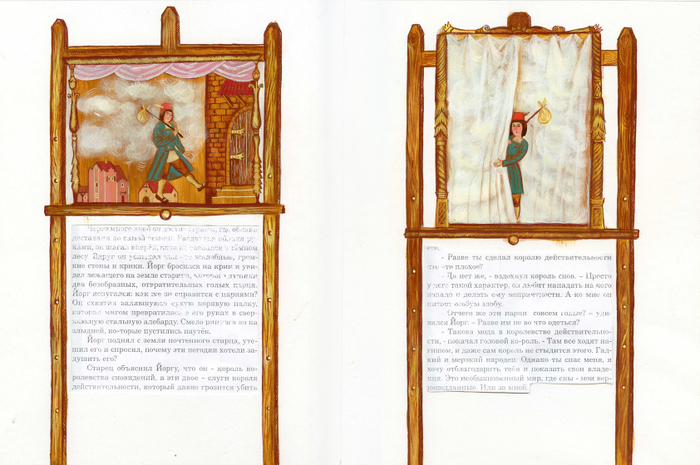 Через много дней он достиг страны, где облака
доставали до самой земли. Раздвигая облака ру-
ками, он шагал вперёд, пока не оказался в тёмном
лесу. Вдруг он услышал какие-то жалобные, гром-
кие стоны и крики. Йорг бросился на крик и уви-
дел лежащего на земле старика, которого душили
два безобразных, отвратительных голых парня.
Йорг испугался: как же он справится с парнями?
Он схватил валявшуюся сухую корявую палку,
которая мигом превратилась в его руках в свер-
кающую стальную алебарду. Смело ринулся он на
злыдней, которые пустились наутёк.
Йорг поднял с земли почтенного старца, уте-
шил его и спросил, почему эти негодяи хотели за-
душить его?
Старец объяснил Йоргу, что он - король ко-
ролевства сновидений, а эти двое - слуги короля
действительности, который давно грозится убить
его.
- Разве ты сделал королю действительности
что-то плохое?
- Да нет же, - вздохнул король снов. - Просто
у него такой характер, он любит нападать на кого
попало и делать ему неприятности. А ко мне он
питает особую злобу.
- Отчего же эти парни совсем голые? - уди-
вился Йорг. - Разве им не во что одеться?
- Такова мода в королевстве действительно-
сти, - покачал головой ко-роль. - Там все ходят на-
гишом, и даже сам король не стыдится этого. Гад-
кий и мерзкий народец! Однако ты спас меня, я
хочу отблагодарить тебя и показать свои владе-
ния. Это необыкновенный мир, где сны - мои вер-
ноподданные. Иди за мной!